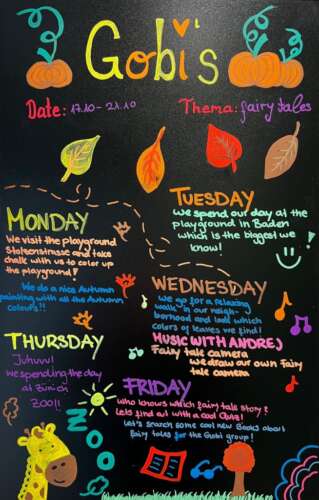 Gobi's
Date: 17.10 - 21.10
Thema: fairy tales
MONDAY
We visit the playground
and take
chalk with us to color up
the playground!
We do a nice Autumn
painting with all the Autumn
colours!!
TUESDAY
We spend our day at the
playground in Baden
which is the biggest we
know!
WEDNESDAY
We go for a relaxing
walk in our neigh-
borhood and look which
colors of leaves we find!
MUSIC WITH ANDREJ
Fairy tale camera
we draw our own fairy
tale camera
THURSDAY
Juhuuu!
We spending the day
at Zürich
ZOO!!
ZOO
FRIDAY
Who knows which fairy tale story?
Lets find out with a cool Quiz!
Let's search some cool new Books about
fairy tales for the Gobi group!